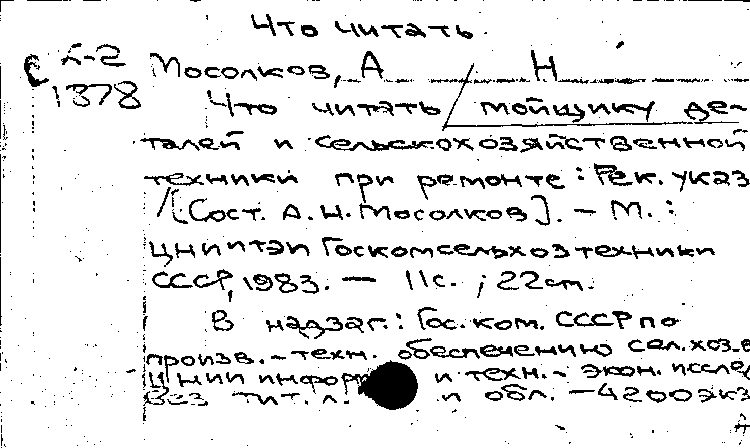 Что читать
Мосолков, А Н
1378
Что читать / мойщику де-
талей и сельскохозяйственной
техники при ремонте : Рек. указ
/[Сост. А. Н. Мосолков]. – М. :
ЦНИИТЭИ Госкомсельхозтехники
СССР, 1983. – 11с. ; 22см.
В надзаг.: Гос. ком. СССР по
произв.-техн. обеспечению сел. хоз-в
ЦНИИ информ и техн.-экон. исслед
Без тит. л. и обл. – 4200 экз